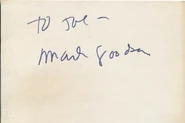 To Joe -
Mark Goodson